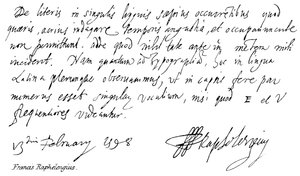 De literis in singulis linguis sæpius occurrentibus quod
quæris, acrius indagare temporis angustia, et occupationes
non permittunt. idque quod mihi tale ante in mentem non
incidert. Nam quantum ad typographia, hoc in lingua
Latina plerumque observavimus, ut in capsis fere par
numerus esset singularum vocalium, nisi quod E et V
frequentiores viderentur.
Februarij 1598
FRaphelengius
Francis Raphelengius.